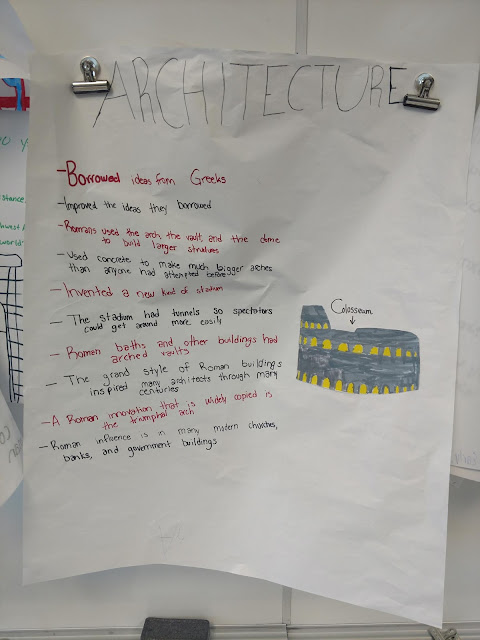 ARCHITECTURE
-Borrowed ideas from Greeks
-Improved the ideas they borrowed
-Romans used the arch, the vault, and the dome
to build larger structures
-Used concrete to make much bigger arches
than anyone had attempted before
-Invented a new kind of stadium
- The stadium had tunnels so spectators
could get around more easily
- Roman baths and other buildings had
arched vaults
- The grand style of Roman buildings
inspired many architects through many
centuries
-A Roman innovation that is widely copied is
the triumphal arch
-Roman influence is in many modern churches,
banks, and government buildings
Colosseum